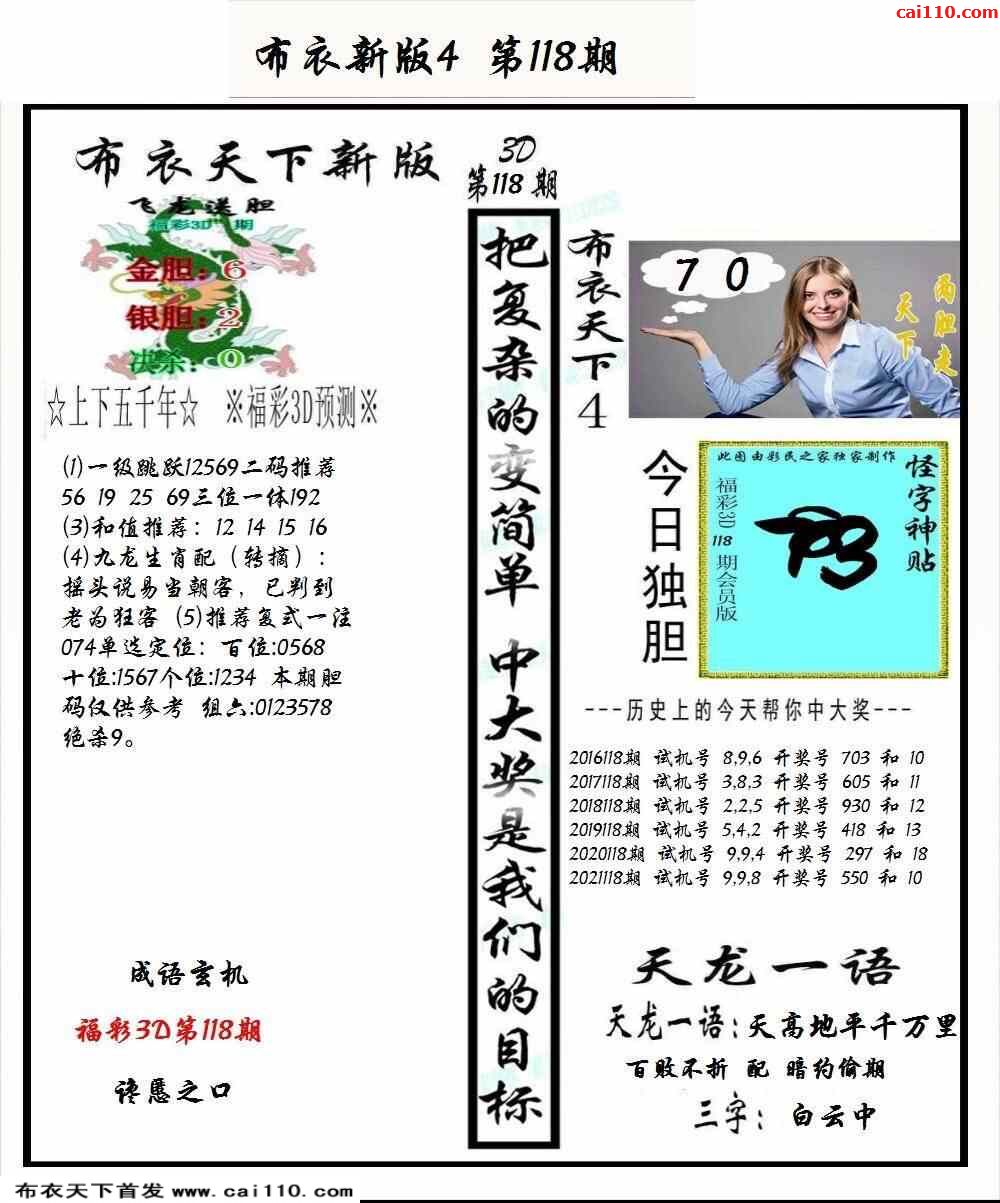 cai110.com
布衣新版4 第118期
布衣天下新版
飞龙送胆
福彩3D 期
金胆：6
银胆：2
决杀：0
☆上下五千年☆ ※福彩3D预测※
(1)一级跳跃12569二码推荐
56 19 25 69三位一体192
(3)和值推荐：12 14 15 16
(4)九龙生肖配（转摘）：
摇头说易当朝客，已判到
老为狂客 (5)推荐复式一注
074单选定位：百位:0568
十位:1567个位:1234 本期胆
码仅供参考 组六:0123578
绝杀9。
成语玄机
福彩3D第118期
谗慝之口
3D
第118期
把复杂的变简单 中大奖是我们的目标
布衣天下4
7 0
两胆走
天下
今日独胆
此图由彩民之家独家制作
怪字神贴
福彩3D 118 期会员版
---历史上的今天帮你中大奖---
2016118期 试机号 8,9,6 开奖号 703 和 10
2017118期 试机号 3,8,3 开奖号 605 和 11
2018118期 试机号 2,2,5 开奖号 930 和 12
2019118期 试机号 5,4,2 开奖号 418 和 13
2020118期 试机号 9,9,4 开奖号 297 和 18
2021118期 试机号 9,9,8 开奖号 550 和 10
天龙一语
天龙一语：天高地平千万里
百败不折 配 暗约偷期
三字：白云中
布衣天下首发 www.cai110.com